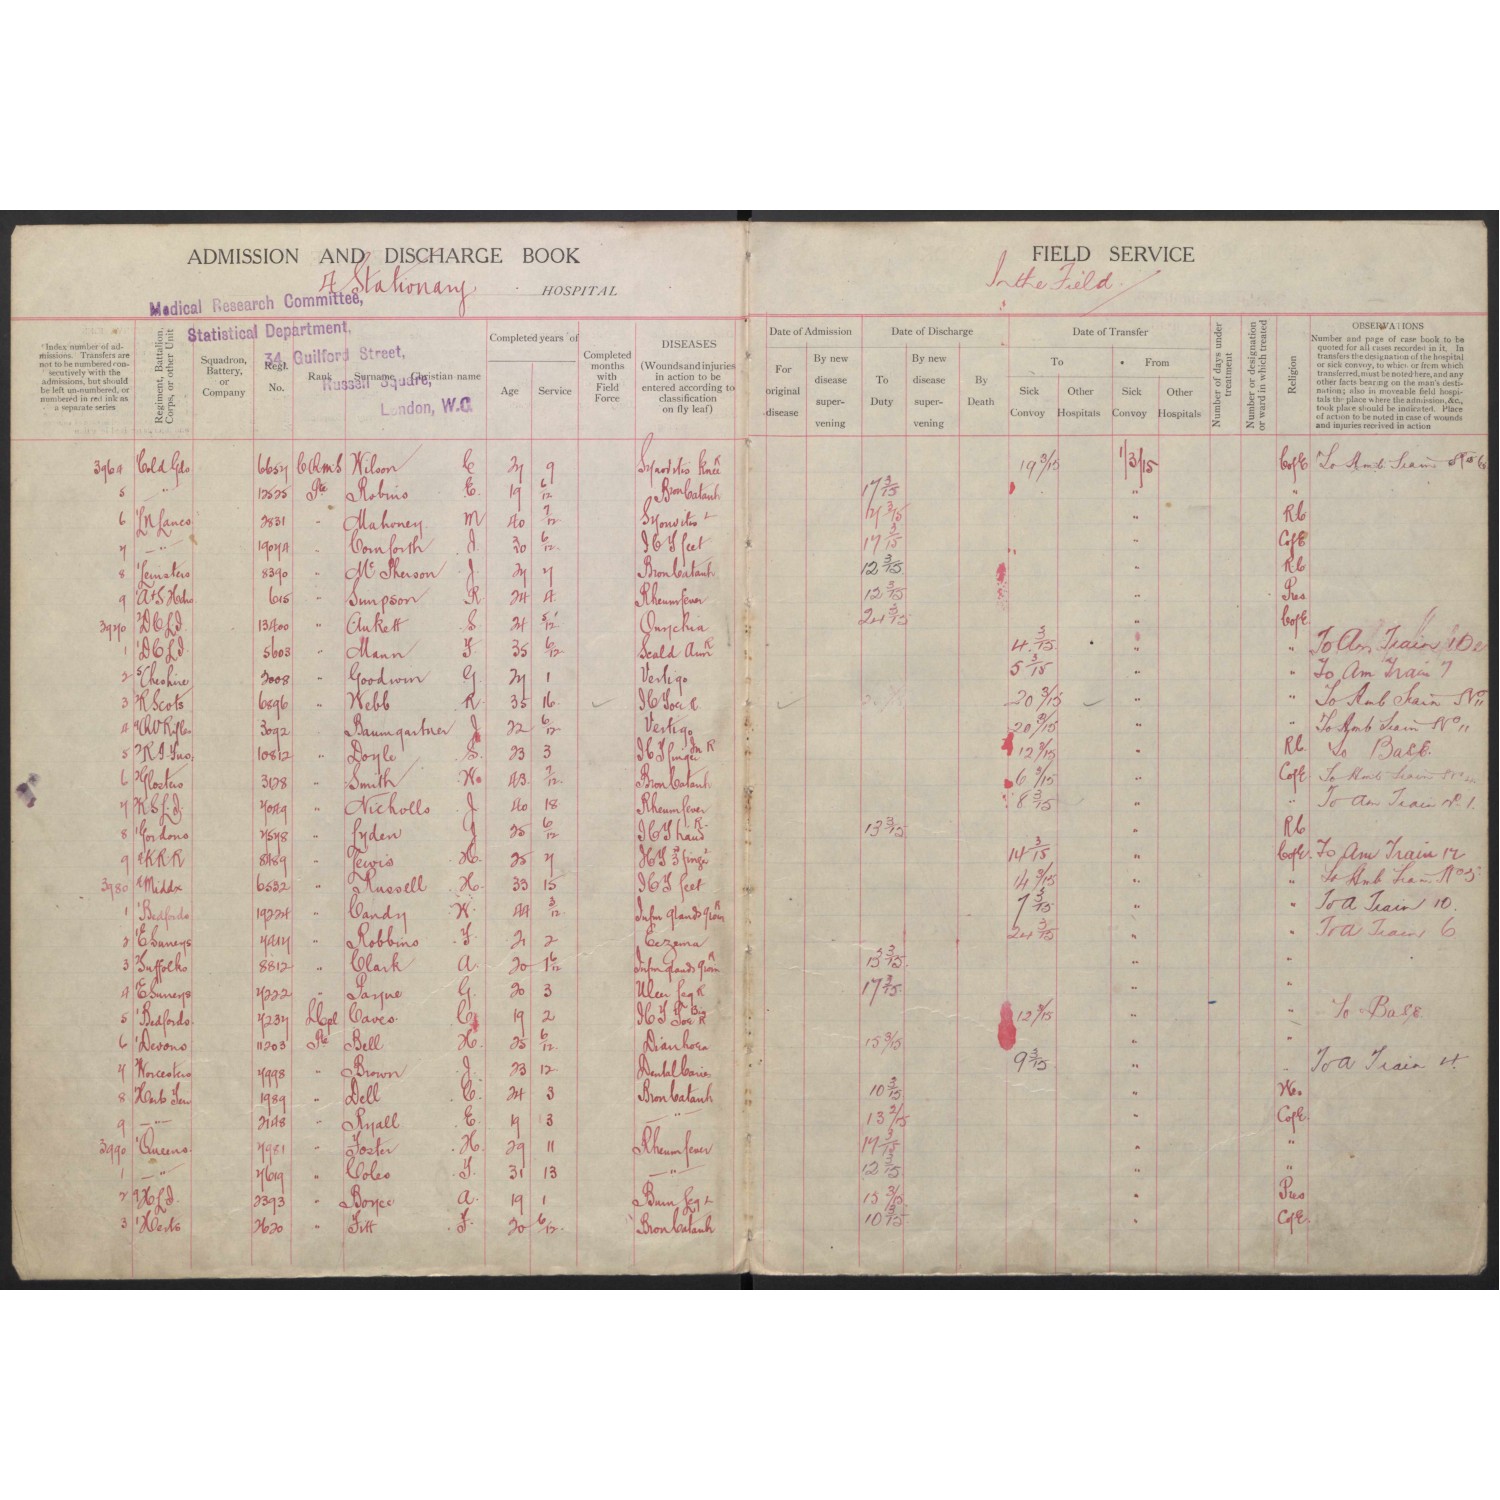 ADMISSION AND DISCHARGE BOOK
4 Stationary HOSPITAL
FIELD SERVICE
In the Field.
Medical Research Committee,
Statistical Department,
34, Guilford Street,
Russell Square,
London, W.C.
Index number of admissions. Transfers are not to be numbered consecutively with the admissions, but should be left un-numbered, or numbered in red ink as a separate series
Regiment, Battalion, Corps, or other Unit
Squadron, Battery, or Company
Regl. No.
Rank
Surname
Christian name
Completed years of
Age
Service
Completed months with Field Force
DISEASES
(Wounds and injuries in action to be entered according to classification on fly leaf)
Date of Admission
For original disease
By new disease supervening
Date of Discharge
To Duty
By new disease supervening
By Death
Date of Transfer
To
From
Sick Convoy
Other Hospitals
Sick Convoy
Other Hospitals
Number of days under treatment
Number or designation or ward in which treated
Religion
OBSERVATIONS
Number and page of case book to be quoted for all cases recorded in it. In transfers the designation of the hospital or sick convoy, to which or from which transferred, must be noted here, and any other facts bearing on the man's destination; also in moveable field hospitals the place where the admission, &c., took place should be indicated. Place of action to be noted in case of wounds and injuries received in action
3964 Cold Gds 6657 CQMS Wilson C 27 9 Synovitis Knee R 19 3/15 1/3/15 CofE To Amb Train
5 " 12525 Pte Robins E. 19 6/12 BronCatarrh 17 3/15 " "
6 LN Lancs 2831 " Mahoney M 40 7/12 Synovitis L 3/15 " RC
7 " 19074 " Cornforth J 30 6/12 ICT feet 17 3/15 " CofE
8 Leinsters 8390 " McPherson J. 27 7 BronCatarrh 12 3/15 " RC
9 A+S Hdrs 615 " Simpson R 24 4 Rheum fever 12 3/15 " Pres
3970 DCLI 13400 " Aukett S 21 5/12 Onychia 24 3/15 " CofE.
1 DCLI 5603 " Mann F. 35 6/12 Scald Arm R 4 3/15 " " To Am Train 10
2 Cheshire 3008 " Goodwin G. 27 1 Vertigo 5 3/15 " " To Am Train 7
3 R Scots 6896 " Webb R. 35 16 ICToe R 20 3/15 " " To Amb Train No 11
4 QV Rifles 3092 " Baumgartner J. 22 6/12 Vertigo 20 3/15 " " To Amb Train No 11
5 R I Fus 10812 " Doyle S. 23 3 ICT finger R 12 3/15 " RC To Base.
6 Glosters 3128 " Smith W. 43. 7/12 BronCatarrh 6 3/15 " CofE To Amb Train No
7 KSLI 7049 " Nicholls J 40 18 Rheum fever 8 3/15 " " To Am Train No 1.
8 Gordons 7578 " Lyden J 25 6/12 ICT hand R 13 3/15 " RC
9 KRR 8189 " Lewis H. 25 7 ICT finger 14 3/15 " CofE. To Am Train 12
3980 Middx 6532 " Russell H. 33 15 ICT feet 14 3/15 " " To Amb Train No 5
1 Bedfords 19224 " Candy W. 44 3/12 Infm glands groin R 7 3/15 " " To A Train 10.
2 E Surreys " Robbins F. 21 2 Eczema 24 3/15 " " To A Train 6
3 Suffolks 8812 " Clark A. 20 1 6/12 Infm glands groin R 13 3/15 " "
4 E Surreys 7222 " Payne G. 20 3 Ulcer leg R 17 3/15 " "
5 Bedfords 7237 LCpl Caves C 19 2 ICT Toe R 12 3/15 " " To Base.
6 Devons 11203 Pte Bell H. 25 6/12 Diarrhoea 15 3/15 " "
7 Worcesters 7998 " Brown J. 23 12 Dental Caries 9 3/15 " " To A Train 4.
8 Herts Terr 1989 " Dell C. 24 3 BronCatarrh 10 3/15 " W.
9 " 2148 " Ryall E. 19 3 " 13 2/15 CofE.
3990 Queens 7981 " Foster H. 29 11 Rheum fever 17 3/15 " "
1 " 7619 " Coles F. 31 13 " 12 3/15 " "
2 HLI 2393 " Boyce A. 19 1 Burn leg L 15 3/15 " Pres
3 Herts 2620 " Fitt F. 20 6/12 BronCatarrh 10 3/15 " CofE